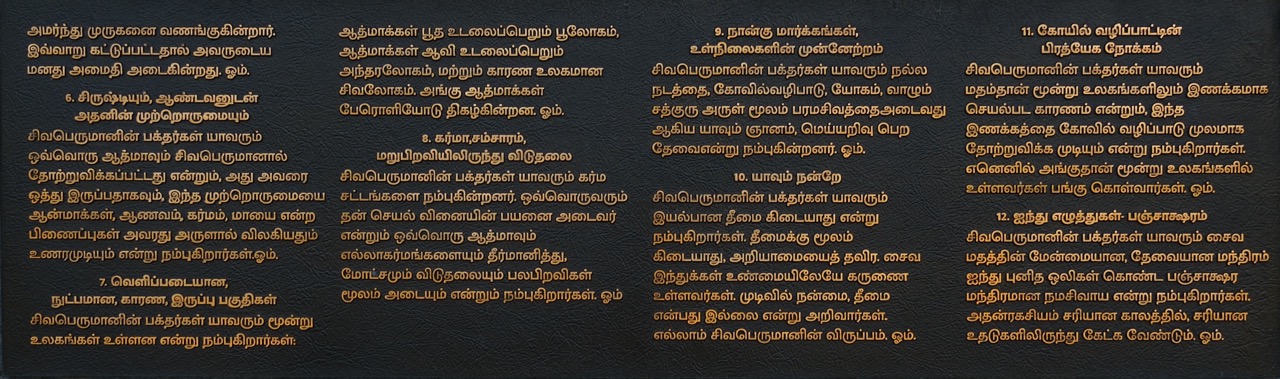 அமர்ந்து முருகனை வணங்குகின்றார்.
இவ்வாறு கட்டுப்பட்டதால் அவருடைய
மனது அமைதி அடைகின்றது. ஓம்.
6. சிருஷ்டியும், ஆண்டவனுடன்
அதனின் முற்றொருமையும்
சிவபெருமானின் பக்தர்கள் யாவரும்
ஒவ்வொரு ஆத்மாவும் சிவபெருமானால்
தோற்றுவிக்கப்பட்டது என்றும், அது அவரை
ஒத்து இருப்பதாகவும், இந்த முற்றொருமையை
ஆன்மாக்கள், ஆணவம், கர்மம், மாயை என்ற
பிணைப்புகள் அவரது அருளால் விலகியதும்
உணரமுடியும் என்று நம்புகிறார்கள்.ஓம்.
7. வெளிப்படையான,
நுட்பமான, காரண, இருப்பு பகுதிகள்
சிவபெருமானின் பக்தர்கள் யாவரும் மூன்று
உலகங்கள் உள்ளன என்று நம்புகிறார்கள்:
ஆத்மாக்கள் பூத உடலைப்பெறும் பூலோகம்,
ஆத்மாக்கள் ஆவி உடலைப்பெறும்
அந்தரலோகம், மற்றும் காரண உலகமான
சிவலோகம். அங்கு ஆத்மாக்கள்
பேரொளியோடு திகழ்கின்றன. ஓம்.
8. கர்மா,சம்சாரம்,
மறுபிறவியிலிருந்து விடுதலை
சிவபெருமானின் பக்தர்கள் யாவரும் கர்ம
சட்டங்களை நம்புகின்றனர். ஒவ்வொருவரும்
தன் செயல் வினையின் பயனை அடைவர்
என்றும் ஒவ்வொரு ஆத்மாவும்
எல்லாகர்மங்களையும் தீர்மானித்து,
மோட்சமும் விடுதலையும் பலபிறவிகள்
மூலம் அடையும் என்றும் நம்புகிறார்கள். ஓம்
9. நான்கு மார்க்கங்கள்,
உள்நிலைகளின் முன்னேற்றம்
சிவபெருமானின் பக்தர்கள் யாவரும் நல்ல
நடத்தை, கோவில்வழிபாடு, யோகம், வாழும்
சத்குரு அருள் மூலம் பரமசிவத்தைஅடைவது
ஆகிய யாவும் ஞானம், மெய்யறிவு பெற
தேவைஎன்று நம்புகின்றனர். ஓம்.
10. யாவும் நன்றே
சிவபெருமானின் பக்தர்கள் யாவரும்
இயல்பான தீமை கிடையாது என்று
நம்புகிறார்கள். தீமைக்கு மூலம்
கிடையாது, அறியாமையைத் தவிர. சைவ
இந்துக்கள் உண்மையிலேயே கருணை
உள்ளவர்கள். முடிவில் நன்மை, தீமை
என்பது இல்லை என்று அறிவார்கள்.
எல்லாம் சிவபெருமானின் விருப்பம். ஓம்.
11. கோயில் வழிப்பாட்டின்
பிரத்யேக நோக்கம்
சிவபெருமானின் பக்தர்கள் யாவரும்
மதம்தான் மூன்று உலகங்களிலும் இணக்கமாக
செயல்பட காரணம் என்றும், இந்த
இணக்கத்தை கோவில் வழிப்பாடு முலமாக
தோற்றுவிக்க முடியும் என்று நம்புகிறார்கள்.
எனெனில் அங்குதான் மூன்று உலகங்களில்
உள்ளவர்கள் பங்கு கொள்வார்கள். ஓம்.
12. ஐந்து எழுத்துகள்- பஞ்சாக்ஷரம்
சிவபெருமானின் பக்தர்கள் யாவரும் சைவ
மதத்தின் மேன்மையான, தேவையான மந்திரம்
ஐந்து புனித ஒலிகள் கொண்ட பஞ்சாக்ஷர
மந்திரமான நமசிவாய என்று நம்புகிறார்கள்.
அதன்ரகசியம் சரியான காலத்தில், சரியான
உதடுகளிலிருந்து கேட்க வேண்டும். ஓம்.